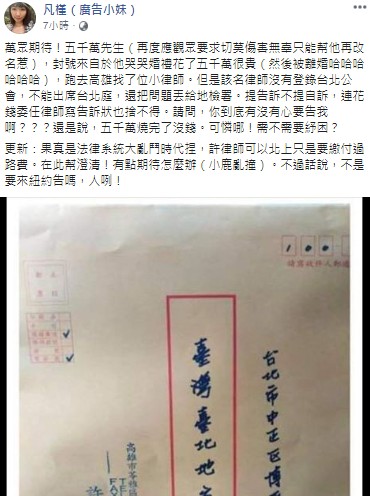 凡槿（廣告小妹）
7小時
萬眾期待！五千萬先生（再度應觀眾要求切莫傷害無辜只能幫他再改
名惹），封號來自於他哭哭婚禮花了五千萬很貴（然後被離婚哈哈哈哈
哈哈哈），跑去高雄找了位小律師。但是該名律師沒有登錄台北公
會，不能出席台北庭，還把問題丟給地檢署。提告訴不提自訴，連花
錢委任律師寫告訴狀也捨不得。請問，你到底有沒有心要告我
啊？？？還是說，五千萬燒完了沒錢。可憐哪！需不需要紓困？
更新：果真是法律系統大亂鬥時代捏，許律師可以北上只是要繳付過
路費。在此幫澄清！有點期待怎麼辦（小鹿亂撞）。不過話說，不是
要來紐約告嗎，人咧！
100
臺灣臺北地
台北市中正區博
高雄市苓雅區
許